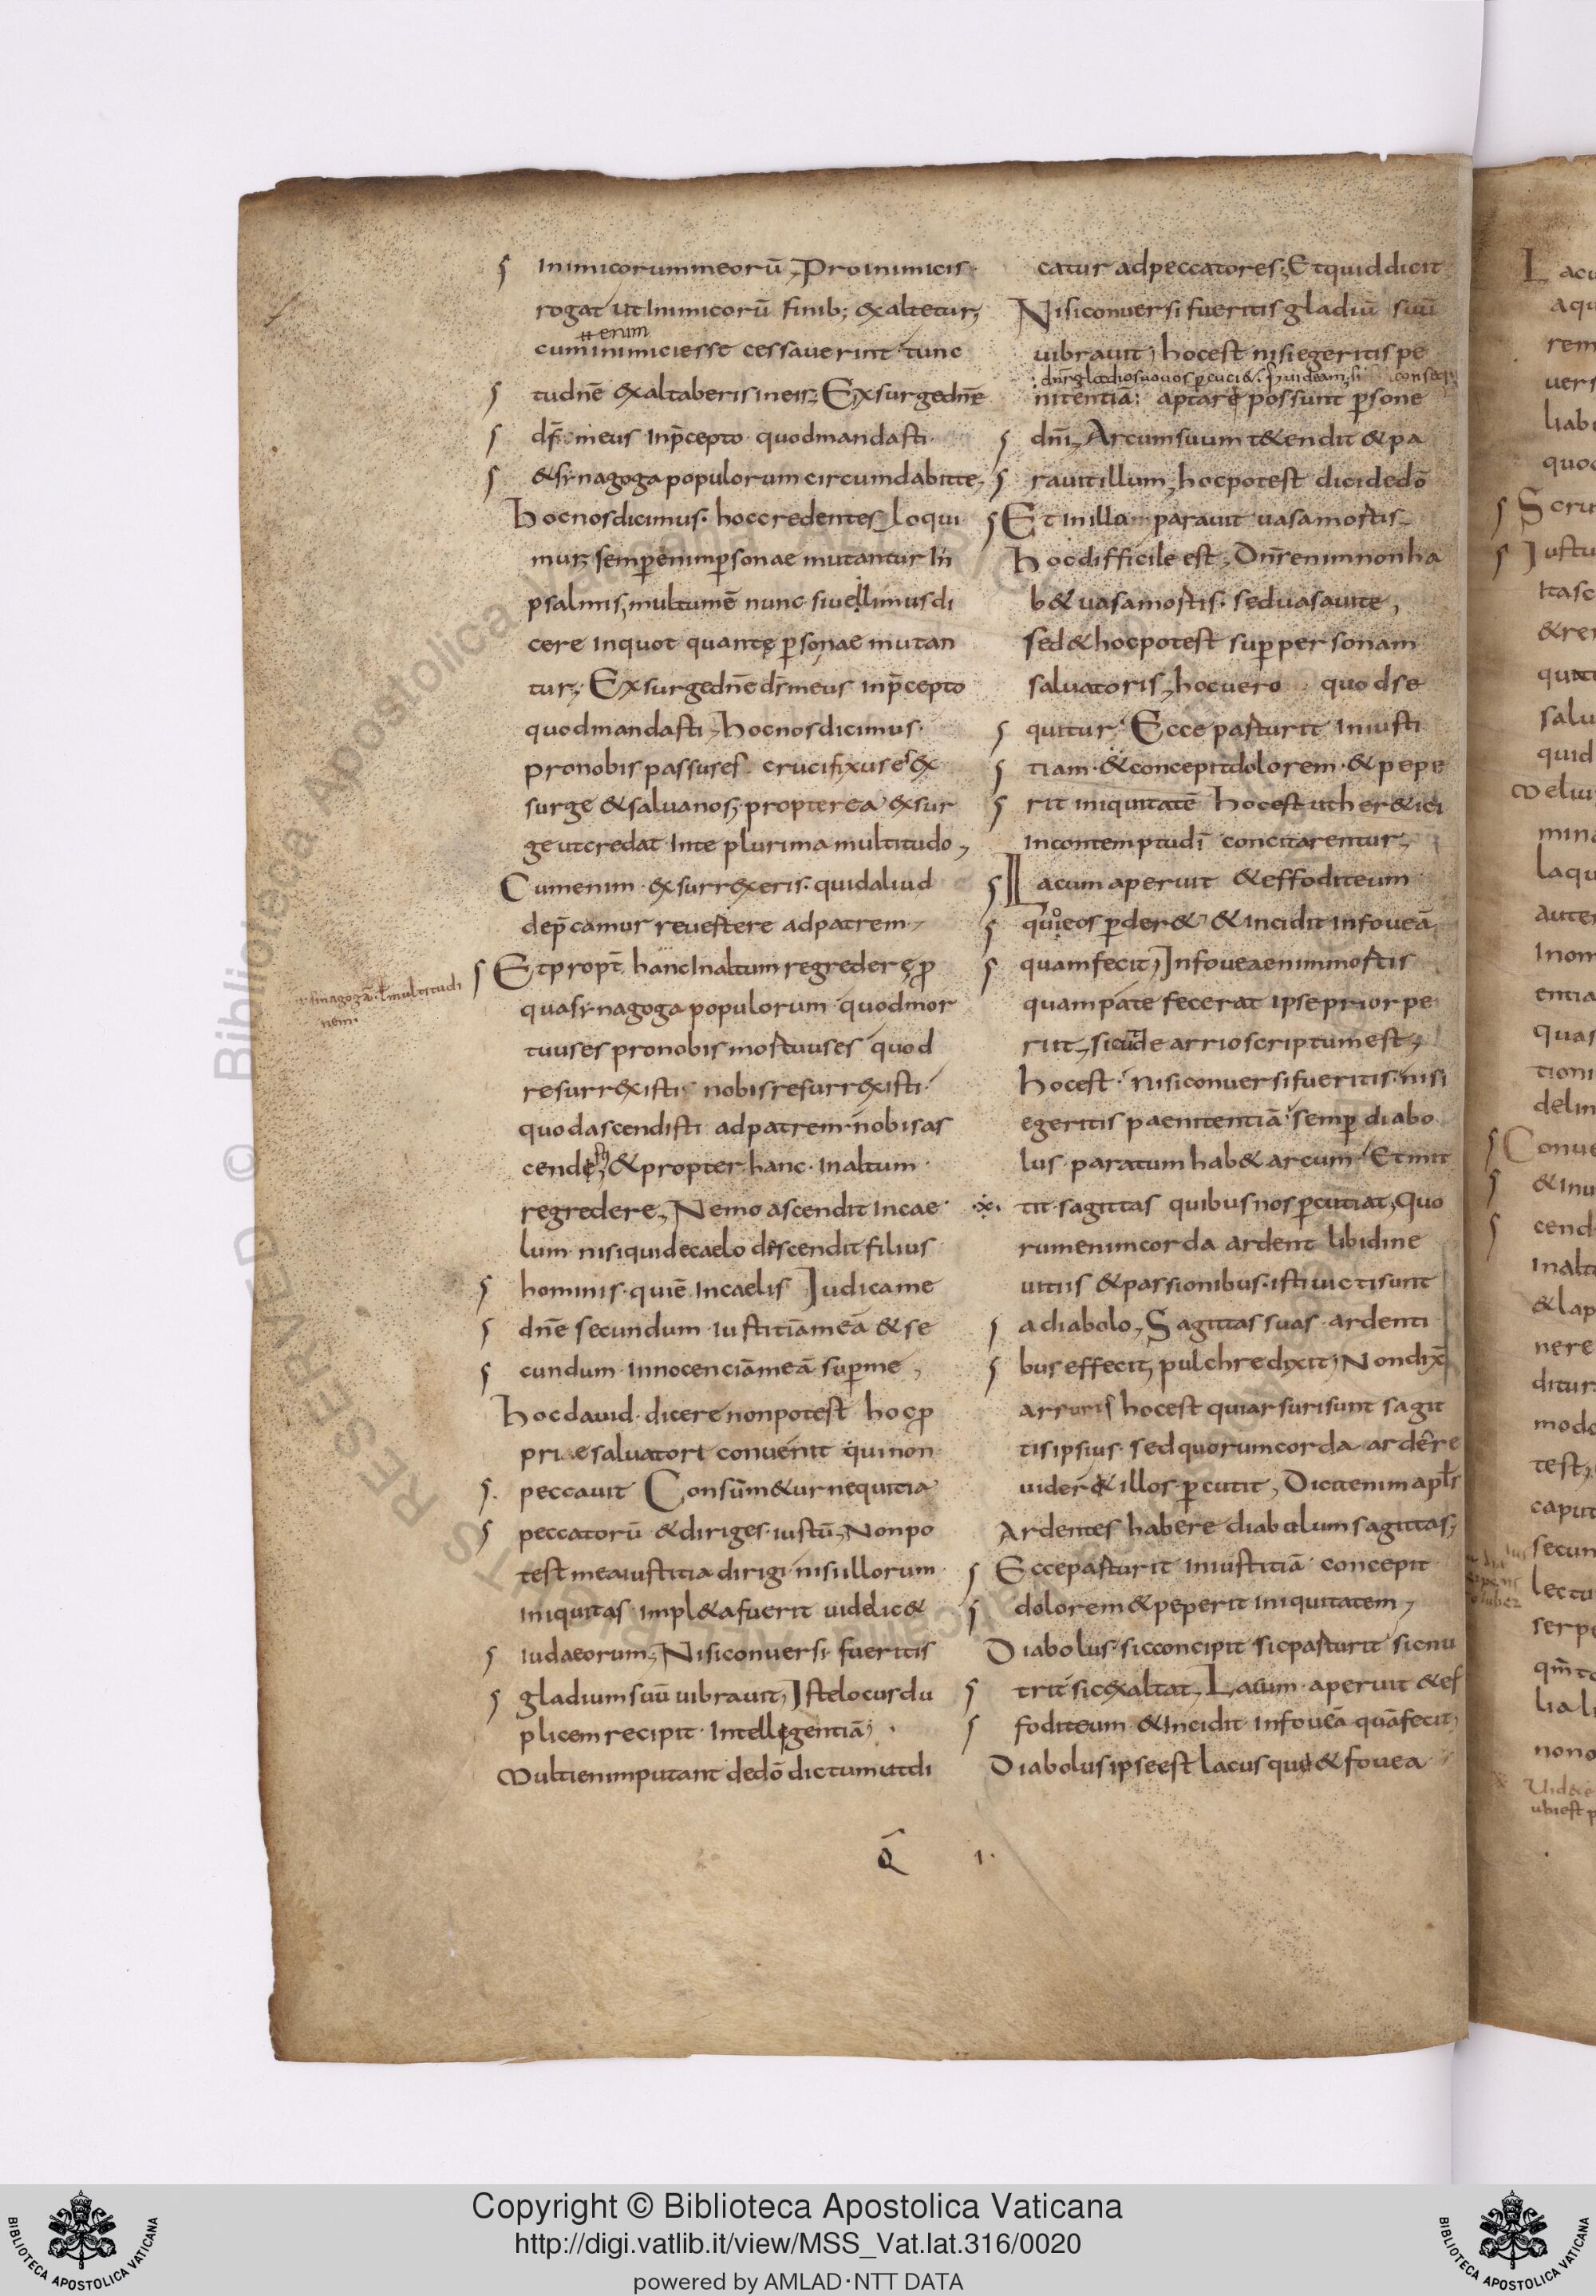 inimicorum meorū, Pro inimicis
rogat ut inimicorū finib; exaltetur,
enim
cum inimici esse cessaverint tunc
tu dnē exaltaberis in eis, Exsurge dnē
ds meus in p̄cepto quod mandasti
& synagoga populorum circumdabit te,
Hoc nos dicimus. hoc credentes loqui
mur, semp enim psonae mutantur in
psalmis, multum ē nunc si vellimus di
cere in quot quante psonae mutan
tur, Exsurge dnē ds meus in p̄cepto
quod mandasti, hoc nos dicimus.
pro nobis passus es. crucifixus es ex
surge & salva nos, propterea exsur
ge ut credat in te plurima multitudo,
Cum enim exsurrexeris. quid aliud
dep̄camur revertere ad patrem,
Et propt hanc in altum regredere, p
synagogā. ł multitudi
nem.
qua synagoga populorum quod mor
tuus es pro nobis mortuus es quod
resurrexisti nobis resurrexisti.
quod ascendisti ad patrem nobis as
cendisti, & propter hanc in altum
regredere, Nemo ascendit in cae
lum nisi qui de caelo descendit filius
hominis. qui ē in caelis Iudica me
dnē secundum iustitiā meā & se
cundum innocenciā meā sup me,
Hoc david dicere non potest hoc p
prie salvatori convenit qui non
peccavit Consūm&ur nequitia
peccatorū & diriges iustū, Non po
test mea iustitia dirigi nisi illorum
iniquitas impl&a fuerit videlic&
iudaeorum, Nisi conversi fueritis
gladium suū vibravit, Iste locus du
plicem recipit intellegentiā,
Multi enim putant de dō dictum ut di
catur ad peccatores, Et quid dicit
Nisi conversi fueritis gladiū suū
vibravit, hoc est nisi egeritis pe
nitentiā: aptare possunt psone
dnī, Arcum suum t&endit & pa
ravit illum, hoc potest dici de dō
Et in illo paravit vasa mortis,
Hoc difficile est, Dns enim non ha
b& vasa mortis. sed vasa vite,
sed & hoc potest sup personam
salvatoris, hoc vero quod se
quitur. Ecce parturit iniusti
tiam. & concepit dolorem. & pepe
rit iniquitatē hoc est ut her&ici
in contemptu dī concitarentur,
Lacum aperuit & effodit eum
quo eos pder& & incidit in foveā
quam fecit, In fovea enim mortis
quam pate fecerat ipse prior pe
riit, sicut de arrio scriptum est,
Hoc est. nisi conversi fueritis. nisi
egeritis paenitentiā. semp diabo
lus paratum hab& arcum. Et mit
tit sagittas quibus nos pcutiat, Quo
rum enim corda ardent libidine
vitiis & passionibus. isti victi sunt
a diabolo, Sagittas suas ardenti
bus effecit, pulchre dixit, Non dix̄
arsuris hoc est qui arsuri sunt sagit
tis ipsius. sed quorum corda ardere
vider& illos pcutit, Dicit enim apls
Ardentes habere diabolum sagittas,
Ecce parturit iniustitiā concepit
dolorem & peperit iniquitatem,
Diabolus. sic concipit sic parturit sic nu
trit sic exaltat, Lacum aperuit & ef
fodit eum & incidit in foveā quā fecit,
Diabolus ipse est lacus qui & fovea
Q I.
© Biblioteca Apostolica Vaticana ALL RIGHTS RESERVED
Copyright © Biblioteca Apostolica Vaticana
http://digi.vatlib.it/view/MSS_Vat.lat.316/0020
powered by AMLAD·NTT DATA
BIBLIOTECA APOSTOLICA VATICANA
BIBLIOTECA APOSTOLICA VATICANA